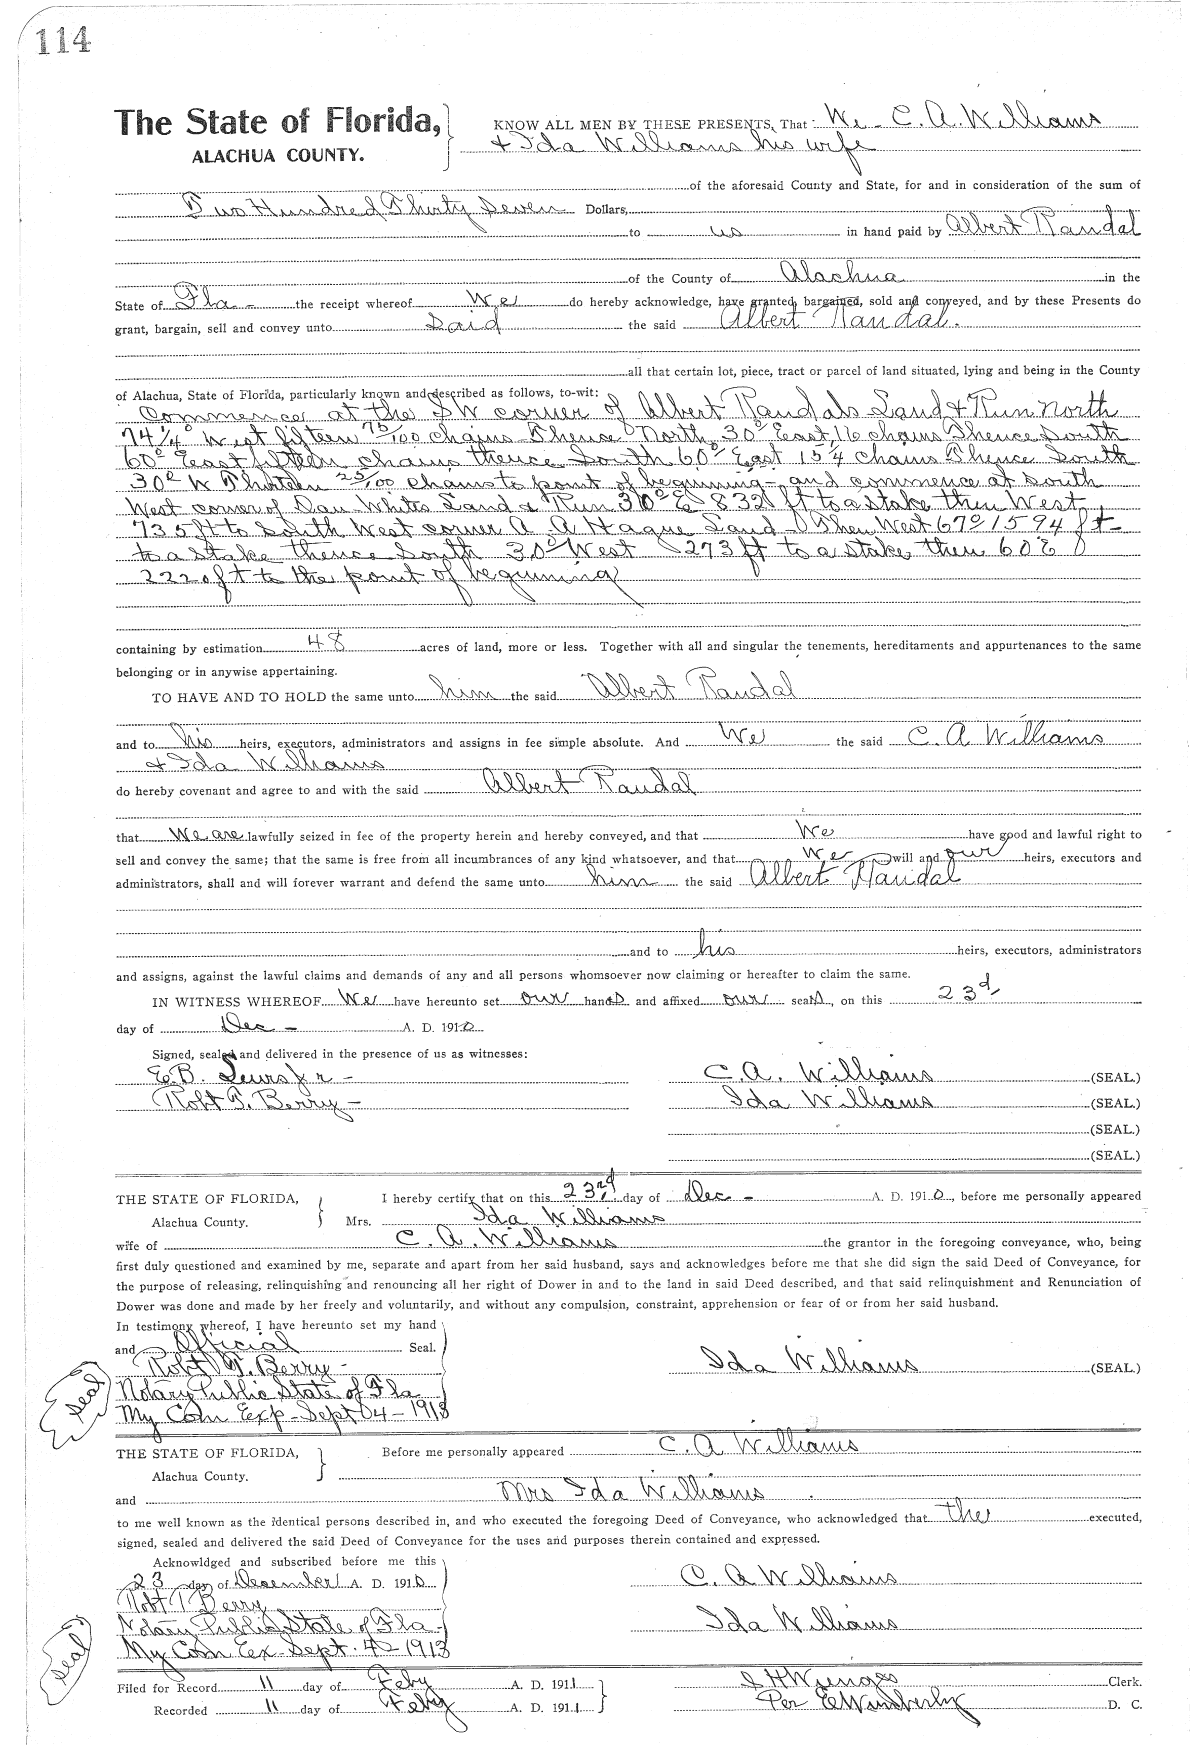 114
The State of Florida,
ALACHUA COUNTY.
KNOW ALL MEN BY THESE PRESENTS, That We - C. A. Williams
+ Ida Williams his wife
of the aforesaid County and State, for and in consideration of the sum of
Two Hundred Thirty Seven Dollars,
to us in hand paid by Albert Randal
of the County of Alachua in the
State of Fla - the receipt whereof We do hereby acknowledge, have granted, bargained, sold and conveyed, and by these Presents do
grant, bargain, sell and convey unto said the said Albert Randal.
all that certain lot, piece, tract or parcel of land situated, lying and being in the County
of Alachua, State of Florida, particularly known and described as follows, to-wit:
Commence at the SW corner of Albert Randals Land + Run North
74 1/4° West fifteen 75/100 chains Thence North 30° East 16 chains Thence South
60° East fifteen chains thence South 60° East 15 1/4 chains Thence South
30° W Thirteen 25/100 chains to point of beginning - and commence at south
West corner of Dan Whites Land + Run 30° E 832 ft to a stake then West
735 ft to South West corner A. A Hague Land - Then West 67° 1594 ft -
to a stake thence South 30° West 273 ft to a stake then 60 E
222 of t to the point of beginning
containing by estimation 48 acres of land, more or less. Together with all and singular the tenements, hereditaments and appurtenances to the same
belonging or in anywise appertaining.
TO HAVE AND TO HOLD the same unto him the said Albert Randal
and to his heirs, executors, administrators and assigns in fee simple absolute. And We the said C. A Williams
+ Ida Williams
do hereby covenant and agree to and with the said Albert Randal
that We are lawfully seized in fee of the property herein and hereby conveyed, and that We have good and lawful right to
sell and convey the same; that the same is free from all incumbrances of any kind whatsoever, and that We will and our heirs, executors and
administrators, shall and will forever warrant and defend the same unto him the said Albert Randal
and to his heirs, executors, administrators
and assigns, against the lawful claims and demands of any and all persons whomsoever now claiming or hereafter to claim the same.
IN WITNESS WHEREOF We have hereunto set our hands and affixed our seals, on this 23d
day of Dec - A. D. 1910
Signed, sealed and delivered in the presence of us as witnesses:
E. B. Jr - C. A. Williams (SEAL.)
Robt T. Berry - Ida Williams (SEAL.)
(SEAL.)
(SEAL.)
THE STATE OF FLORIDA, I hereby certify that on this 23rd day of Dec - A. D. 1910, before me personally appeared
Alachua County. Mrs. Ida Williams
wife of C. A. Williams the grantor in the foregoing conveyance, who, being
first duly questioned and examined by me, separate and apart from her said husband, says and acknowledges before me that she did sign the said Deed of Conveyance, for
the purpose of releasing, relinquishing and renouncing all her right of Dower in and to the land in said Deed described, and that said relinquishment and Renunciation of
Dower was done and made by her freely and voluntarily, and without any compulsion, constraint, apprehension or fear of or from her said husband.
In testimony whereof, I have hereunto set my hand
and Official Seal.
Robt T. Berry - Ida Williams (SEAL)
Seal Notary Public State of Fla
My Com Exp - Sept 04 - 1913
THE STATE OF FLORIDA, Before me personally appeared C. A Williams
Alachua County.
and Mrs Ida Williams
to me well known as the identical persons described in, and who executed the foregoing Deed of Conveyance, who acknowledged that the executed,
signed, sealed and delivered the said Deed of Conveyance for the uses and purposes therein contained and expressed.
Acknowldged and subscribed before me this
23 day of December A. D. 1910 C. A Williams
Robt T Berry
Notary Public State of Fla - Ida Williams
Seal My Com Ex Sept. 4 - 1913
Filed for Record 11 day of Feby A. D. 1911 Clerk.
Recorded 11 day of Feby A. D. 1911 Per E Wimberly D. C.